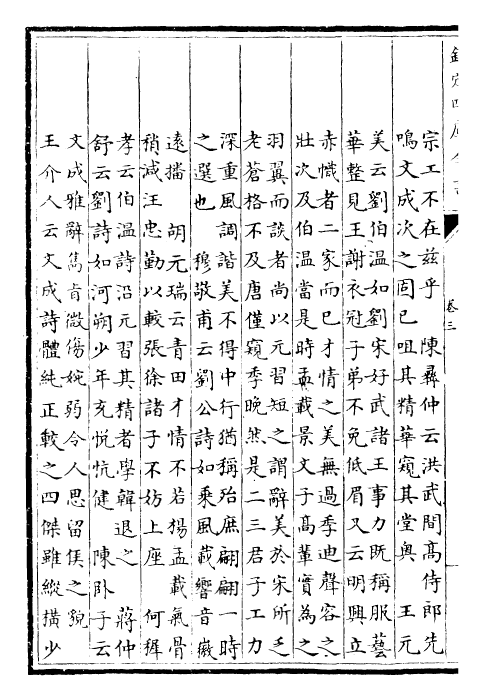 欽定四庫全書
卷三
宗工不在兹乎　陳彞仲云洪武間髙侍郎先
鳴文成次之固已咀其精華窺其堂奥　王元
美云劉伯温如劉宋好武諸王事力既稱服藝
華整見王謝衣冠子弟不免低眉又云明興立
赤幟者二家而已才情之美無過季迪聲容之
壯次及伯温當是時孟載景文子髙輩實為之
羽翼而談者尚以元習短之謂辭美於宋所乏
老蒼格不及唐僅窺季晚然是二三君子工力
深重風調諧美不得中行猶稱殆庶翩翩一時
之選也　穆敬甫云劉公詩如乘風載響音徽
遠播　胡元瑞云青田才情不若楊孟載氣骨
稍減汪忠勤以較張徐諸子不妨上座　何穉
孝云伯温詩沿元習其精者學韓退之　蔣仲
舒云劉詩如河朔少年充悦忼健　陳卧子云
文成雅辭雋肯微傷婉弱令人思留侯之貌
王介人云文成詩體純正較之四傑雖縱横少